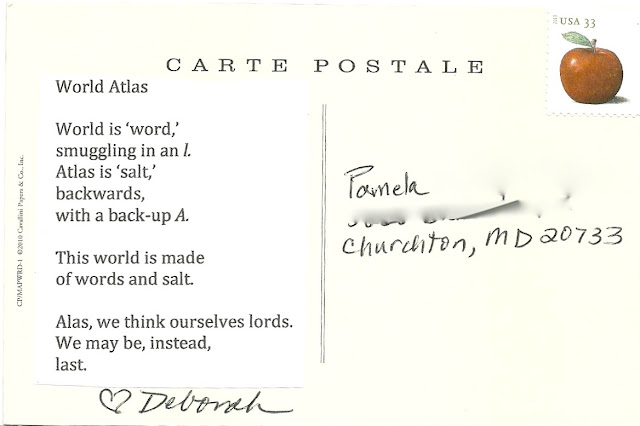 CARTE POSTALE
2013 USA 33
World Atlas
World is ‘word,’
smuggling in an l.
Atlas is ‘salt,’
backwards,
with a back-up A.
This world is made
of words and salt.
Alas, we think ourselves lords.
We may be, instead,
last.
♡ Deborah
CP/MAPWRD-1 ©2010 Cavallini Papers & Co., Inc.
Pamela
Churchton, MD 20733